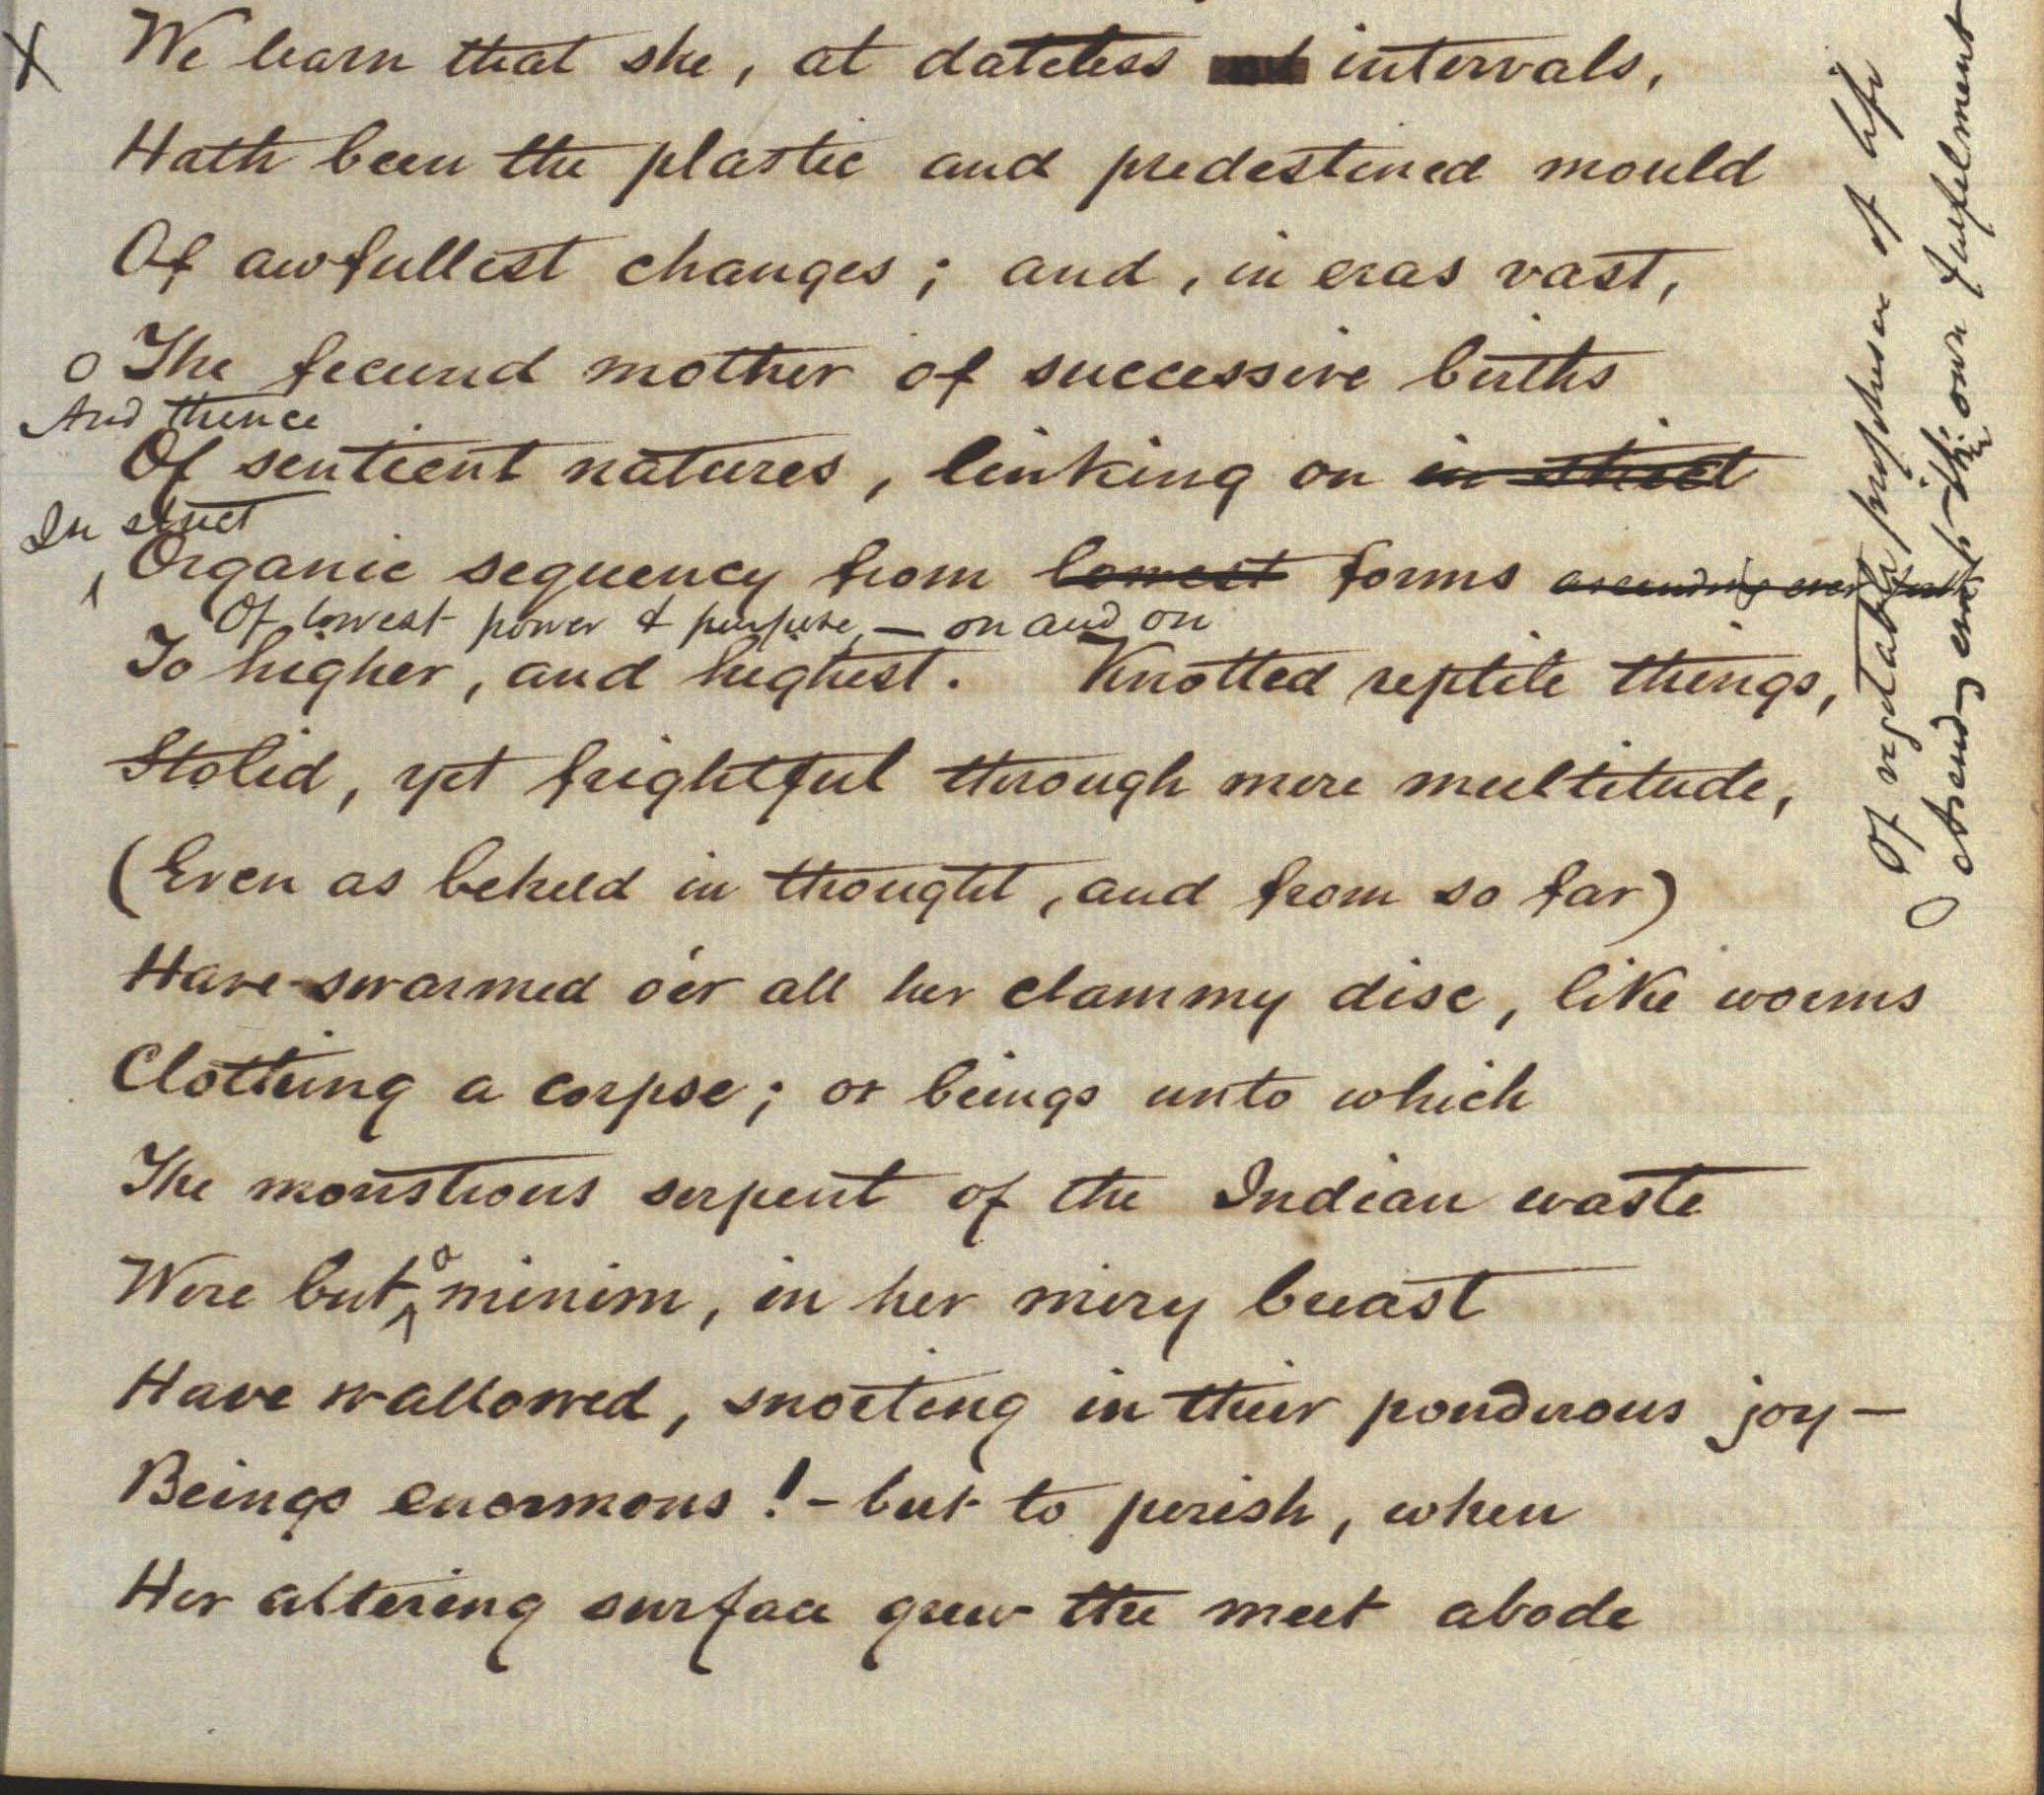 X We learn that she, at dateless intervals,
Hath been the plastic and predestined mould
Of awfullest changes; and, in eras vast,
o The fecund mother of successive births
And thence
Of sentient natures, linking on in strict
In strict
Organic sequency from lowest forms ascending ever
Of lowest power & purpose, — on and on
To higher, and highest. Knotted reptile things,
Stolid, yet frightful through mere multitude,
(Even as beheld in thought, and from so far)
Have swarmed o'er all her clammy disc, like worms
Clothing a corpse; or beings unto which
The monstrous serpent of the Indian waste
Were but a minim, in her miry breast
Have wallowed, snorting in their ponderous joy —
Beings enormous! - but to perish, when
Her altering surface grew the meet abode
Of vegetable prophesies of life
O Ascending ever to their own fulfilment